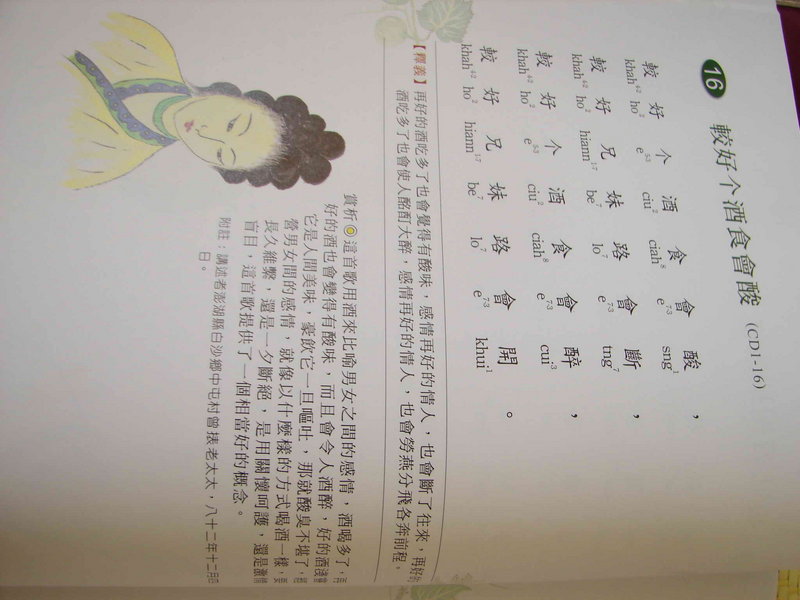 16 較好个酒食會酸 (CD1-16)
較好个酒食會酸，
khah⁴⁻² ho² e⁵⁻³ ciu² ciah⁸ e⁷⁻³ sng¹
較好兄妹路會斷，
khah⁴⁻² ho² hiann¹⁻⁷ be⁷ lo⁷ e⁷⁻³ tng⁷
較好个酒食會醉，
khah⁴⁻² ho² e⁵⁻³ ciu² ciah⁸ e⁷⁻³ cui³
較好兄妹路會開。
khah⁴⁻² ho² hiann¹⁻⁷ be⁷ lo⁷ e⁷⁻³ khui¹
【釋義】再好的酒吃多了也會覺得有酸味，感情再好的情人，也會斷了往來，再好的
酒吃多了也會使人酩酊大醉，感情再好的情人，也會勞燕分飛各奔前程。
賞析◎這首歌用酒來比喻男女之間的感情，酒喝多了，再
好的酒也會變得有酸味，而且會令人酒醉，好的酒淺嘗
它是人間美味，豪飲它一旦嘔吐，那就酸臭不堪了，
營男女間的感情，就像以什麼樣的方式喝酒一樣，要
長久維繫，還是一夕斷絕，是用關懷呵護，還是激情
盲目，這首歌提供了一個相當好的概念。
附註：講述者澎湖縣白沙鄉中屯村曾老太太，八十二年十二月
日。